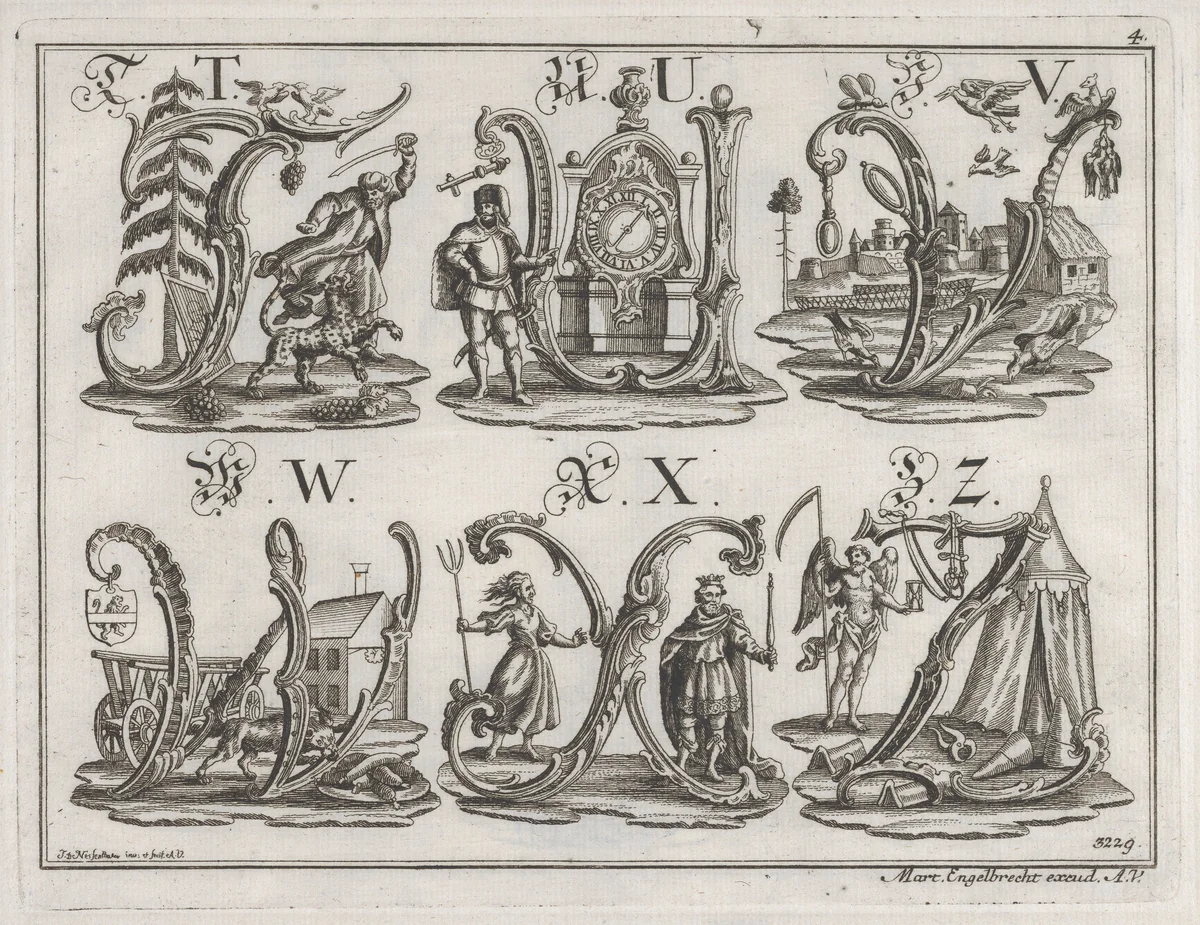 4.
T. T.
U. U.
V. V.
XII
W. W.
X. X.
Z. Z.
3229.
inv: et fecit A.V.
Mart. Engelbrecht excud. A.V.